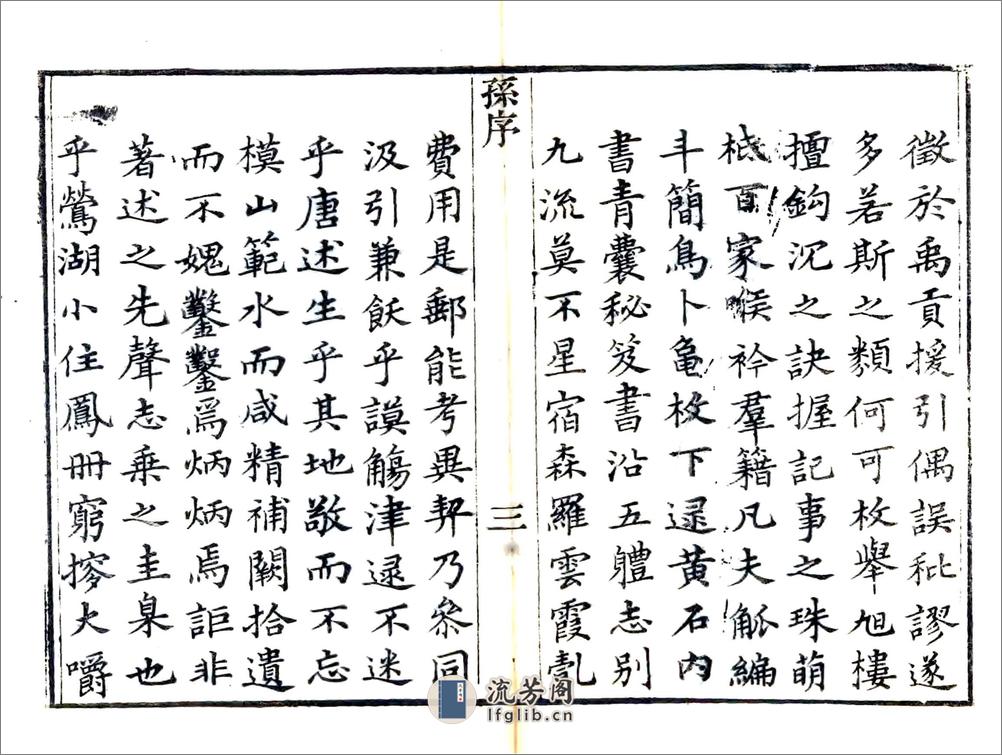 徵於禹貢援引偶誤秕謬遂
多若斯之類何可枚舉旭樓
擅鈎沉之訣握記事之珠萌
柢百家喉衿羣籍凡夫觚編
斗簡鳥卜龜枚下逯黄石内
書青囊秘笈書沿五體志别
九流莫不星宿森羅雲霞亂
孫序
三
費用是郵能考異契乃叅同
汲引兼飫乎謨觴津逯不迷
乎唐述生乎其地敬而不忘
模山範水而咸精補闕拾遺
而不媿鑿鑿焉炳炳焉詎非
著述之先聲志乘之圭臬也
乎鶯湖小住鳳冊窮㨙大嚼
流芳阁
lfglib.cn